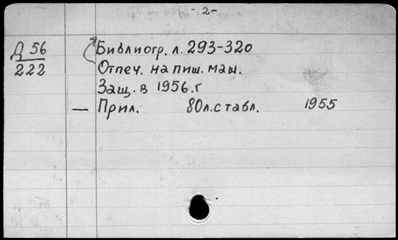 -2-
Д 56
222
Библиогр. л. 293-320
Отпеч. на пиш. маш.
Защ. в 1956.г
— Прил. 80л.с табл. 1955